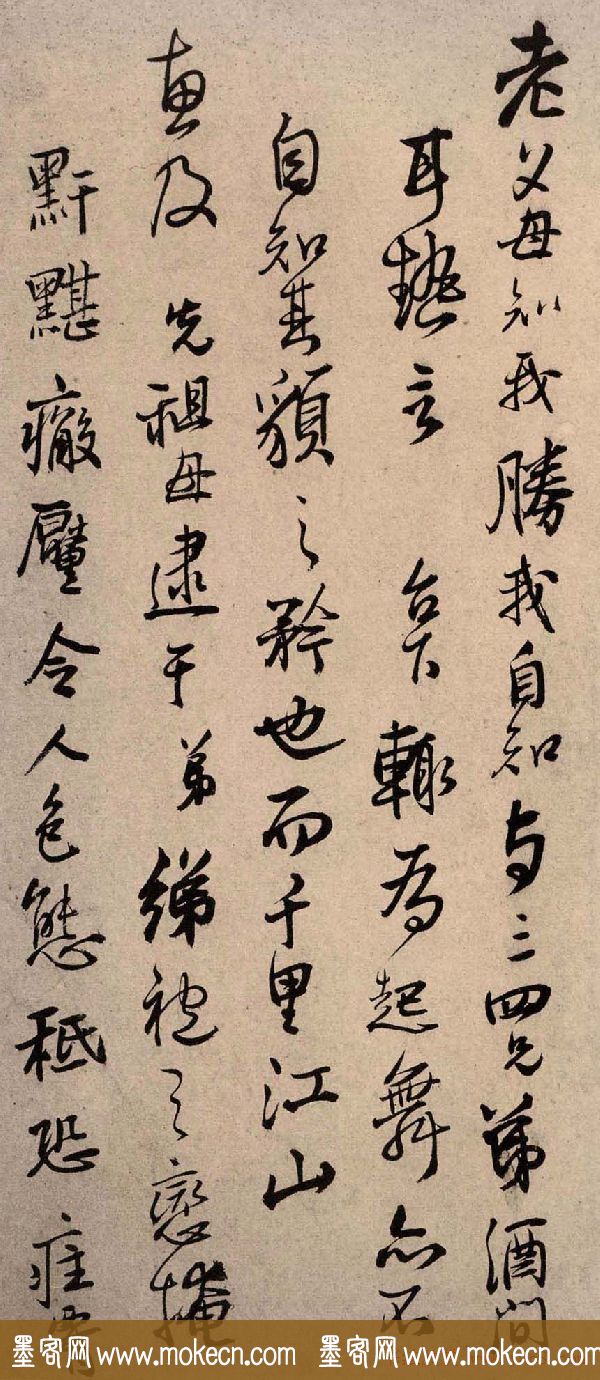 老父母知我勝我自知与三四兄弟酒間
耳熱言 台下輙为起舞亦不
自知其顏之矜也而千里江山
惠及 先祖母逮于弟綈袍之戀
令人色態秪恐疰
墨客网 www.mokecn.com 墨客网 www.mokecn.com